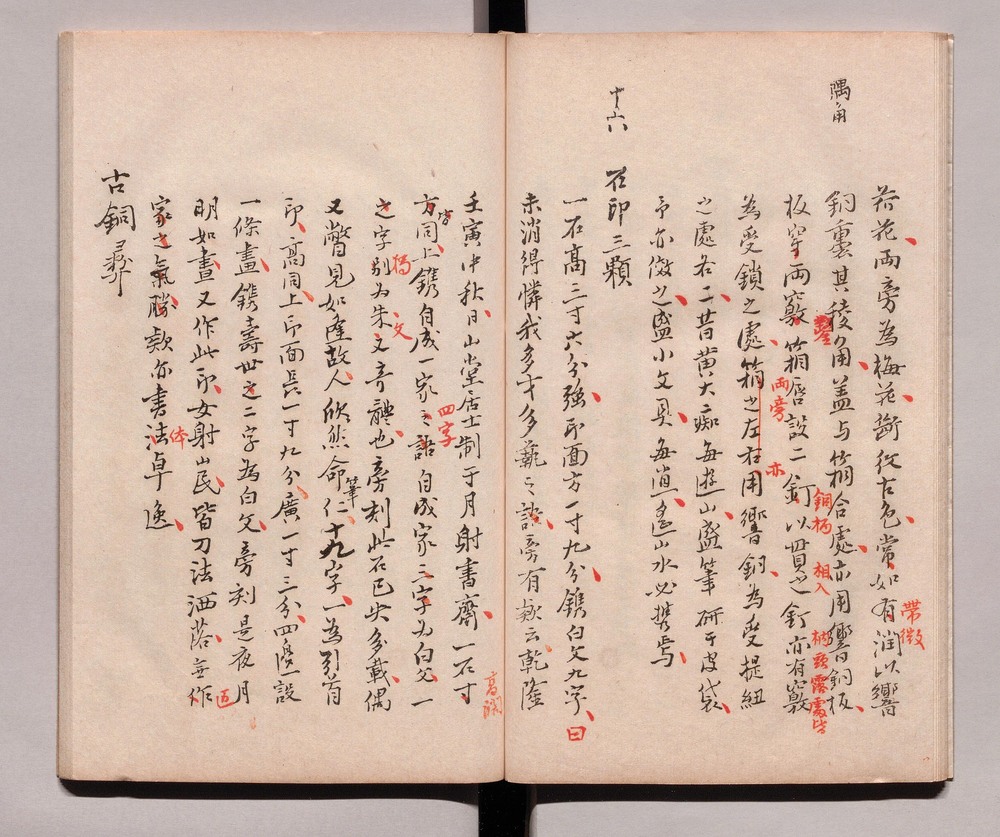 隅角
荷花兩旁為梅花斷紋古色常如有潤以響
帶微
銅裏其稜角盖与箱合處亦用響銅板
板穿兩竅箱唇設二釘以貫之釘亦有竅
銅柄
相入
為受鎖之處箱之左右用響銅為受提紐
兩旁
亦
之處右二昔黄大癡每遊山盛筆研于皮袋
予亦倣之盛小文具每逍遙山水必携焉
十六
石印三顆
一石高三寸六分強印面方一寸九分鐫白文九字
曰
未消得憐我多才多藝之語旁有款云乾隆
壬寅中秋日山堂居士制于月射書齋一石寸
高濶
方同上鐫自成一家之語自成家三字為白文一
皆
四字
之字別為朱文奇體也旁刻此石已失多載偶
文
又瞥見如逢故人欣然命筆仁十九字一為引首
印高同上印面長一寸九分廣一寸三分四邊設
一條畫鐫壽世之二字為白文旁刻是夜月
明如晝又作此印女射山民皆刀法洒落無作
家之氣勝款亦書法卓逸
体
古銅彛